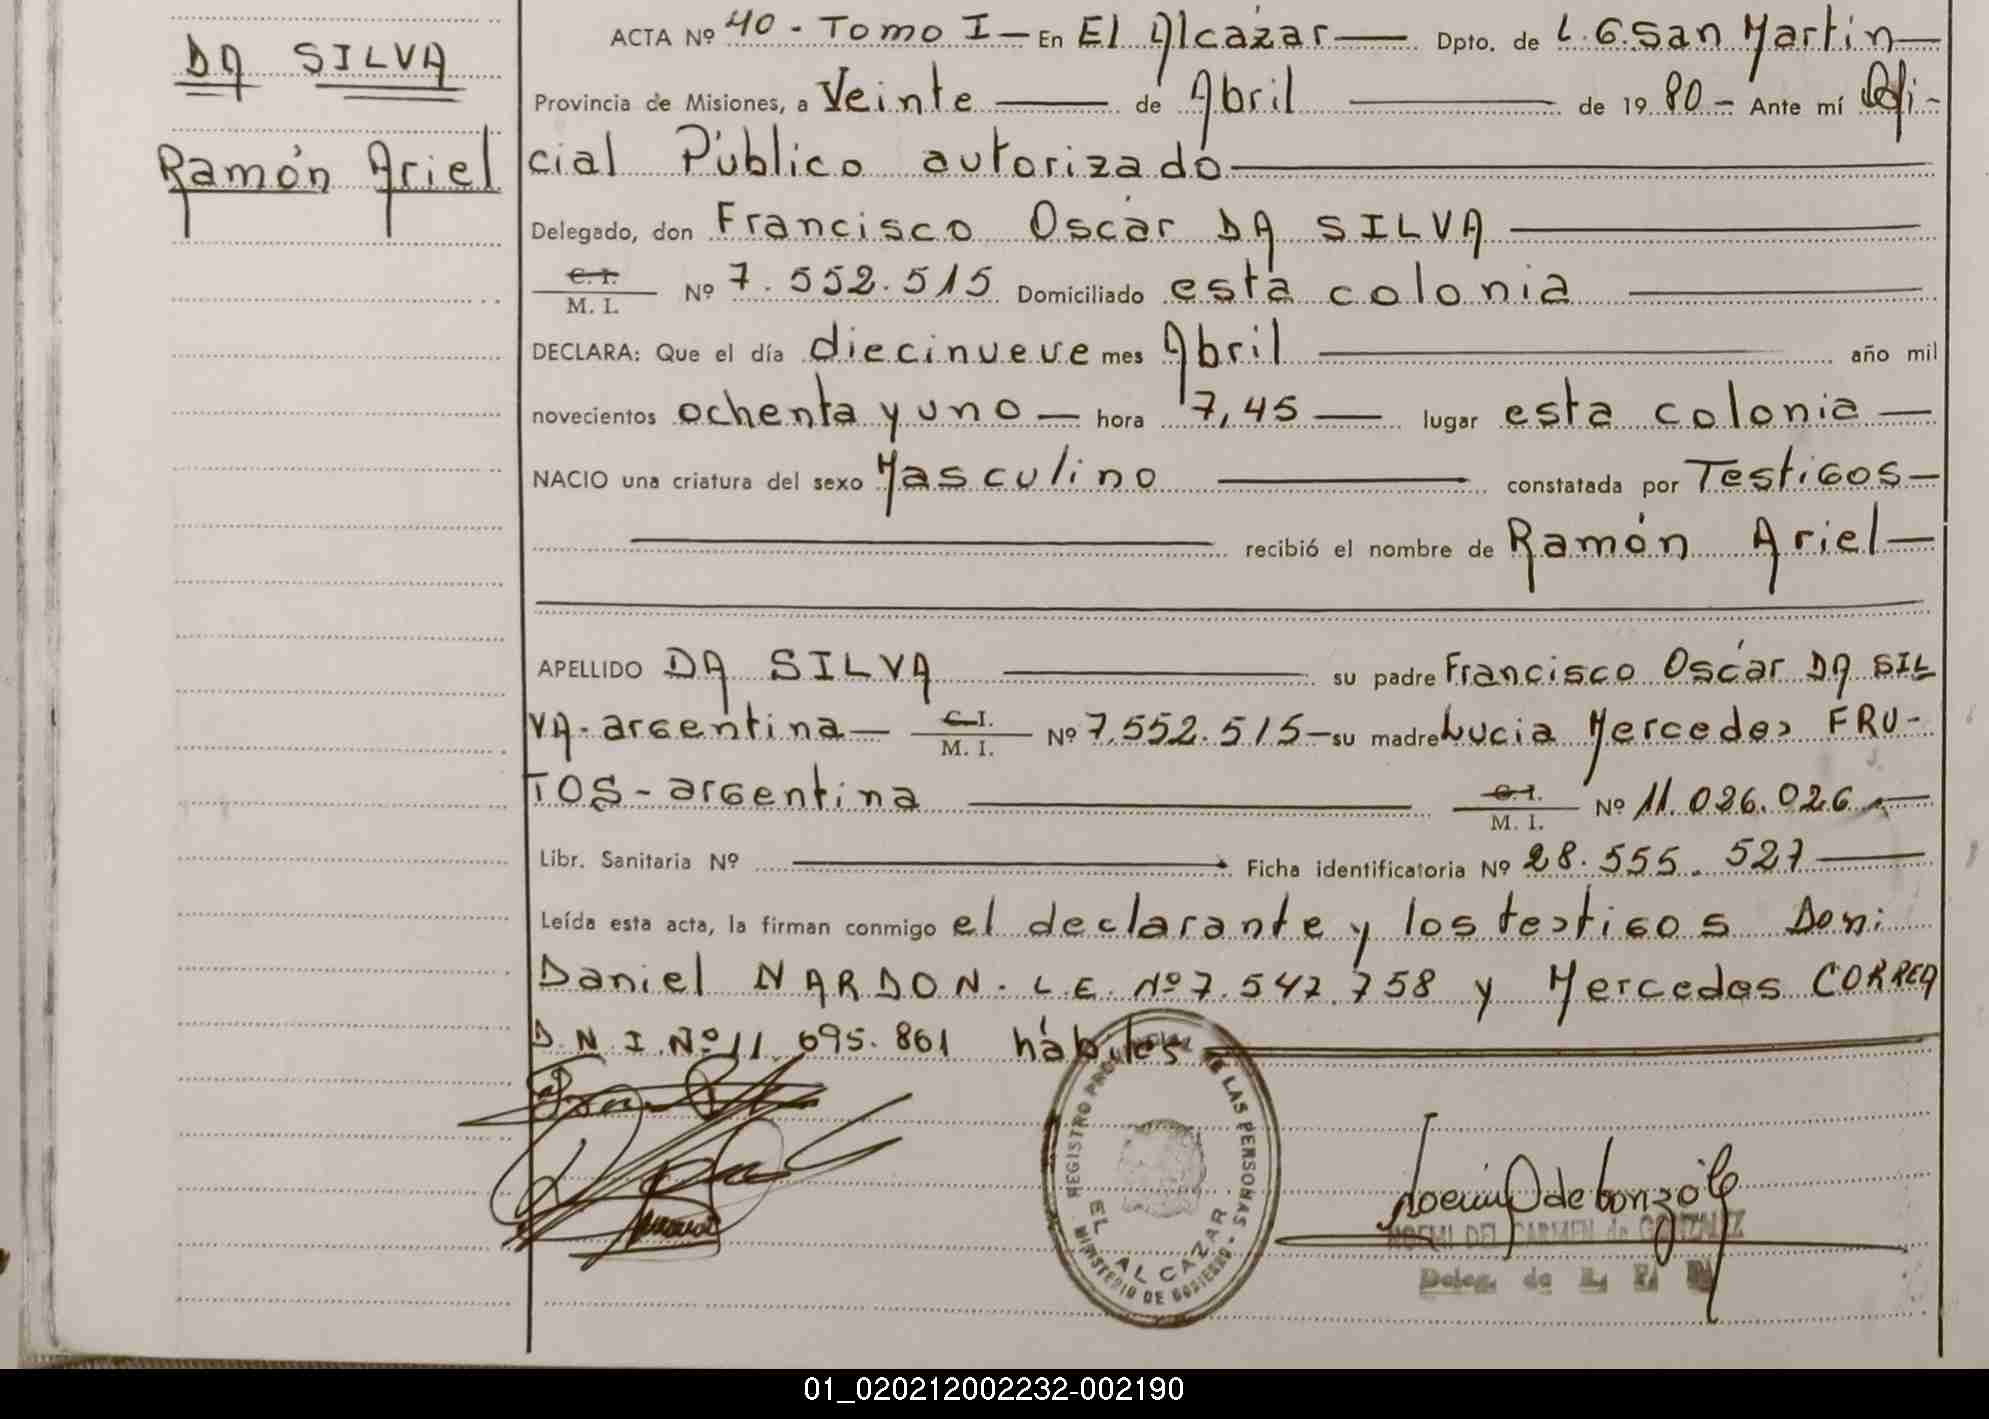 DA SILVA
Ramón Ariel
ACTA Nº 40 - Tomo I - En El Alcázar Dpto. de L. G. San Martín
Provincia de Misiones, a Veinte de Abril de 19 80 - Ante mí Ofi-
cial Público autorizado
Delegado, don Francisco Oscar DA SILVA
C. I.
M. I. Nº 7.552.515 Domiciliado esta colonia
DECLARA: Que el día diecinueve mes Abril año mil
novecientos ochenta y uno - hora 7,45 lugar esta colonia
NACIO una criatura del sexo Masculino constatada por Testigos
recibió el nombre de Ramón Ariel
APELLIDO DA SILVA su padre Francisco Oscar DA SIL
VA - argentina - C. I. M. I. Nº 7.552.515 - su madre Lucia Mercedes FRU-
TOS - argentina C. I. M. I. Nº 11.026.026
Libr. Sanitaria Nº Ficha identificatoria Nº 28.555.527
Leída esta acta, la firman conmigo el declarante y los testigos Don:
Daniel NARDON. L.E. Nº 7.542.758 y Mercedes CORREA
D.N.I. Nº 11.695.861 hábiles
REGISTRO PROVINCIAL DE LAS PERSONAS - MINISTERIO DE GOBIERNO -
EL ALCAZAR
NOEMI DEL CARMEN de GONZALEZ
Deleg. de
01_020212002232-002190